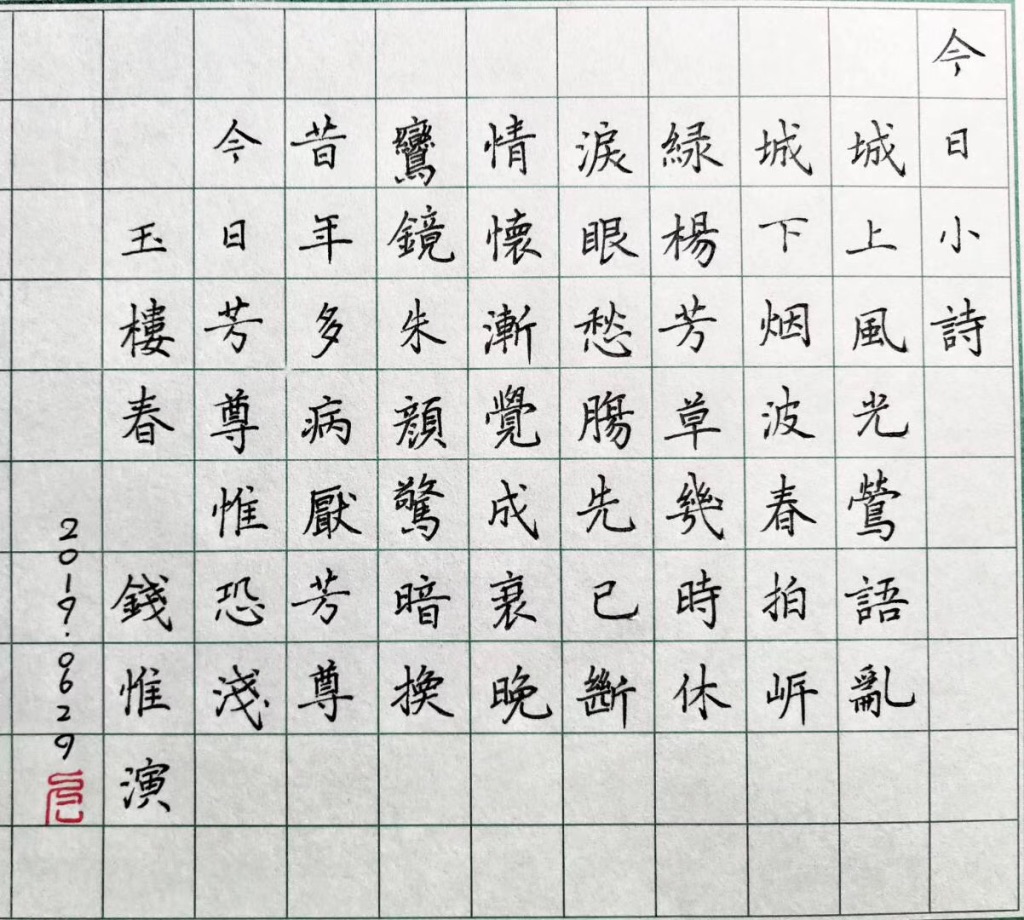 今日小詩
城上風光鶯語亂
城下烟波春拍岍
綠楊芳草幾時休
淚眼愁腸先已斷
情懷漸覺成衰晚
鸞鏡朱顏驚暗換
昔年多病厭芳尊
今日芳尊惟恐淺
玉樓春 錢惟演
2019.0629